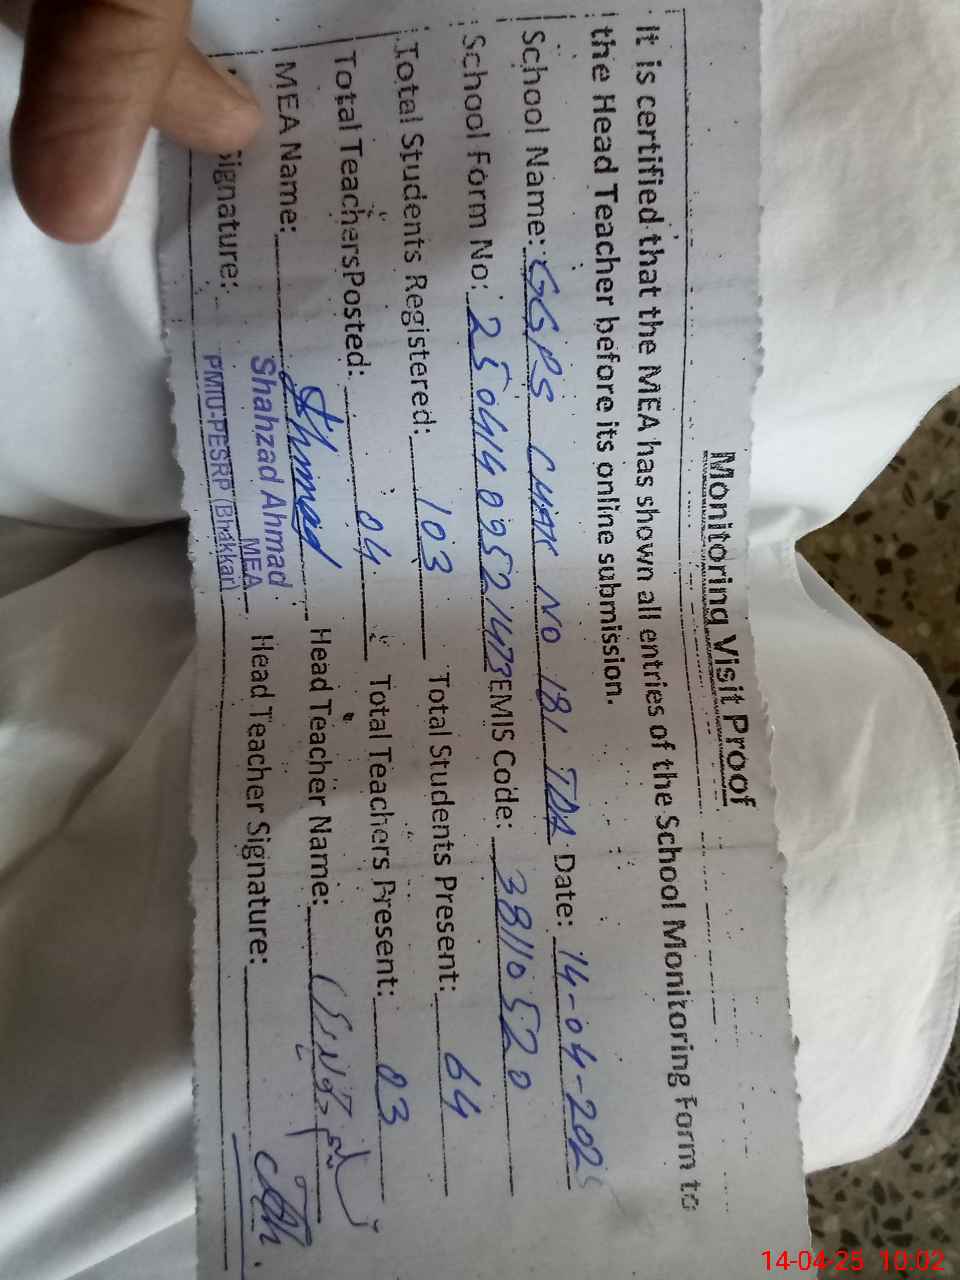 Monitoring Visit Proof
It is certified that the MEA has shown all entries of the School Monitoring Form to
the Head Teacher before its online submission.
School Name: GGPS CHAK NO 181 TDA Date: 14-04-2025
School Form No: 25041409521473 EMIS Code: 38110520
Total Students Registered: 103 Total Students Present: 64
Total Teachers Posted: 04 Total Teachers Present: 03
MEA Name: Ahmad Head Teacher Name:
Signature: Shahzad Ahmad Head Teacher Signature:
MEA
PMIU-PESRP (Bhakkar)
14-04-25 10:02